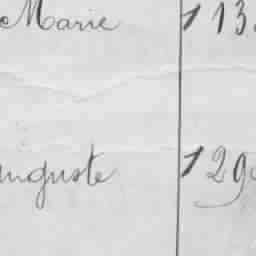 Marie 113
Auguste 129